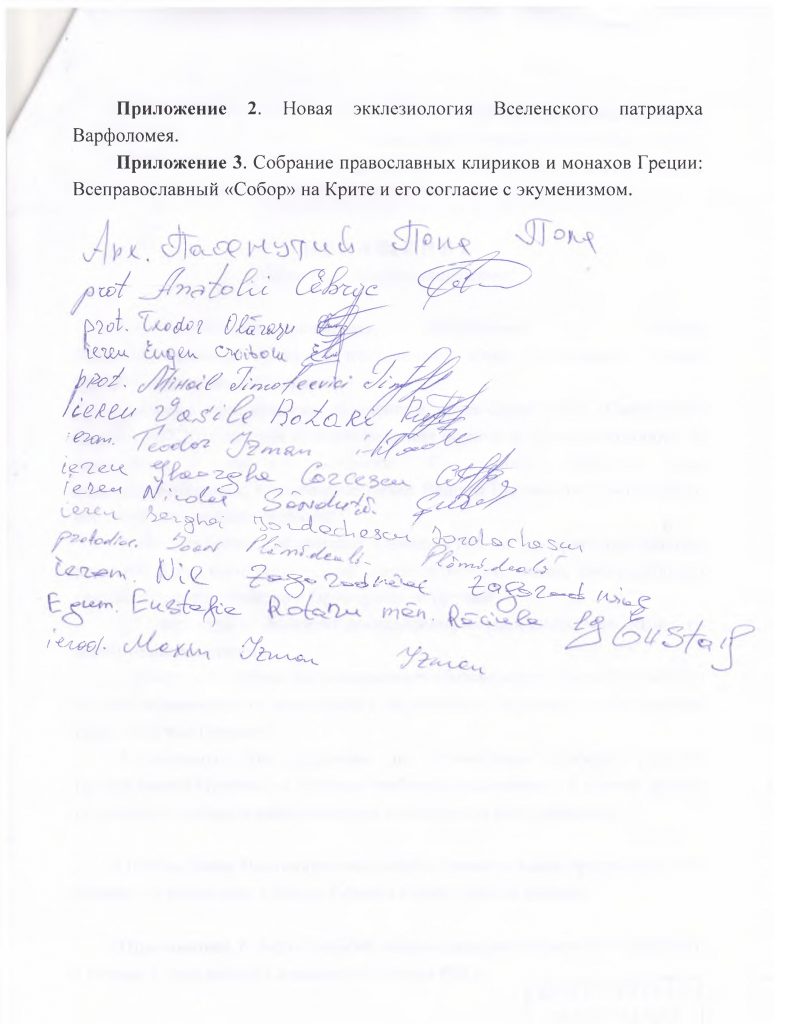 Приложение 2. Новая экклезиология Вселенского патриарха
Варфоломея.
Приложение 3. Собрание православных клириков и монахов Греции:
Всеправославный «Собор» на Крите и его согласие с экуменизмом.
Арх. Пафнутий Попа Попа
prot Anatolii Cebruc
prot. Teodor Olărașu
iereu Eugen
prot. Mihail Timofeevici
iereu Vasile Rotaru
ierom. Teodor Izman
iereu Gheorghe Corcescu
iereu Nicolae
iereu Serghei Iordachescu Iordachescu
protodiac. Ioan Plămădeală Plămădeală
ierom. Nil
Egum. Eustafie Rotaru măn. Răciula Eg Eustafi
ierod. Maxim Izman Izman